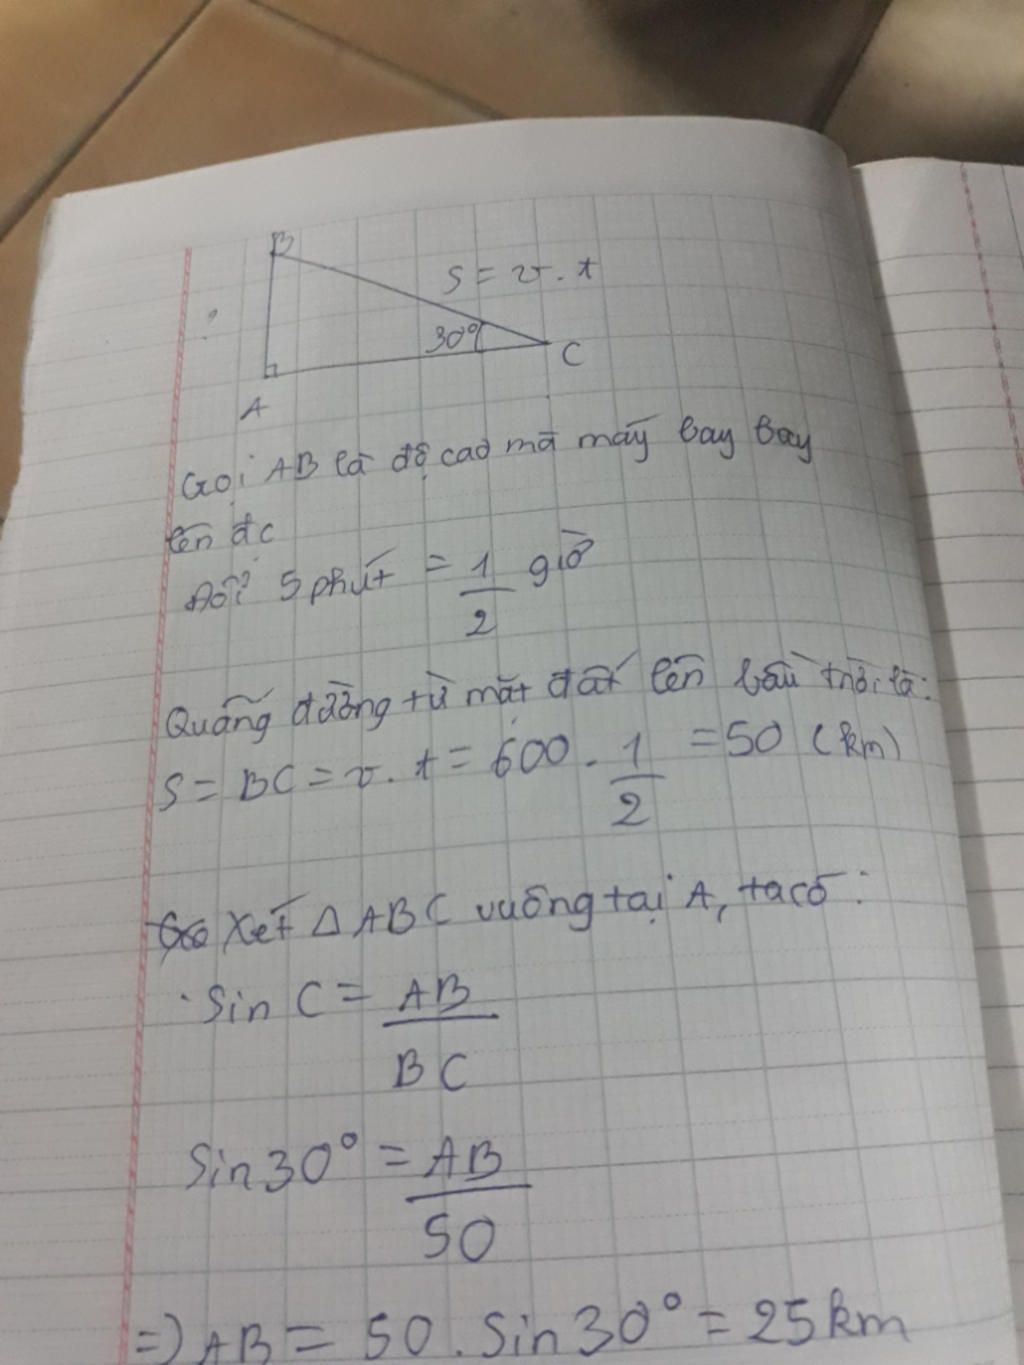 B
S = v. t
30°
C
A
Gọi AB là độ cao mà máy bay bay
lên đc
Đổi 5 phút = 1/2 giờ
Quãng đường từ mặt đất lên bầu trời là:
S = BC = v. t = 600 . 1/2 = 50 (km)
Xét Δ ABC vuông tại A, ta có:
Sin C = AB/BC
Sin 30° = AB/50
=) AB = 50 . Sin 30° = 25 km